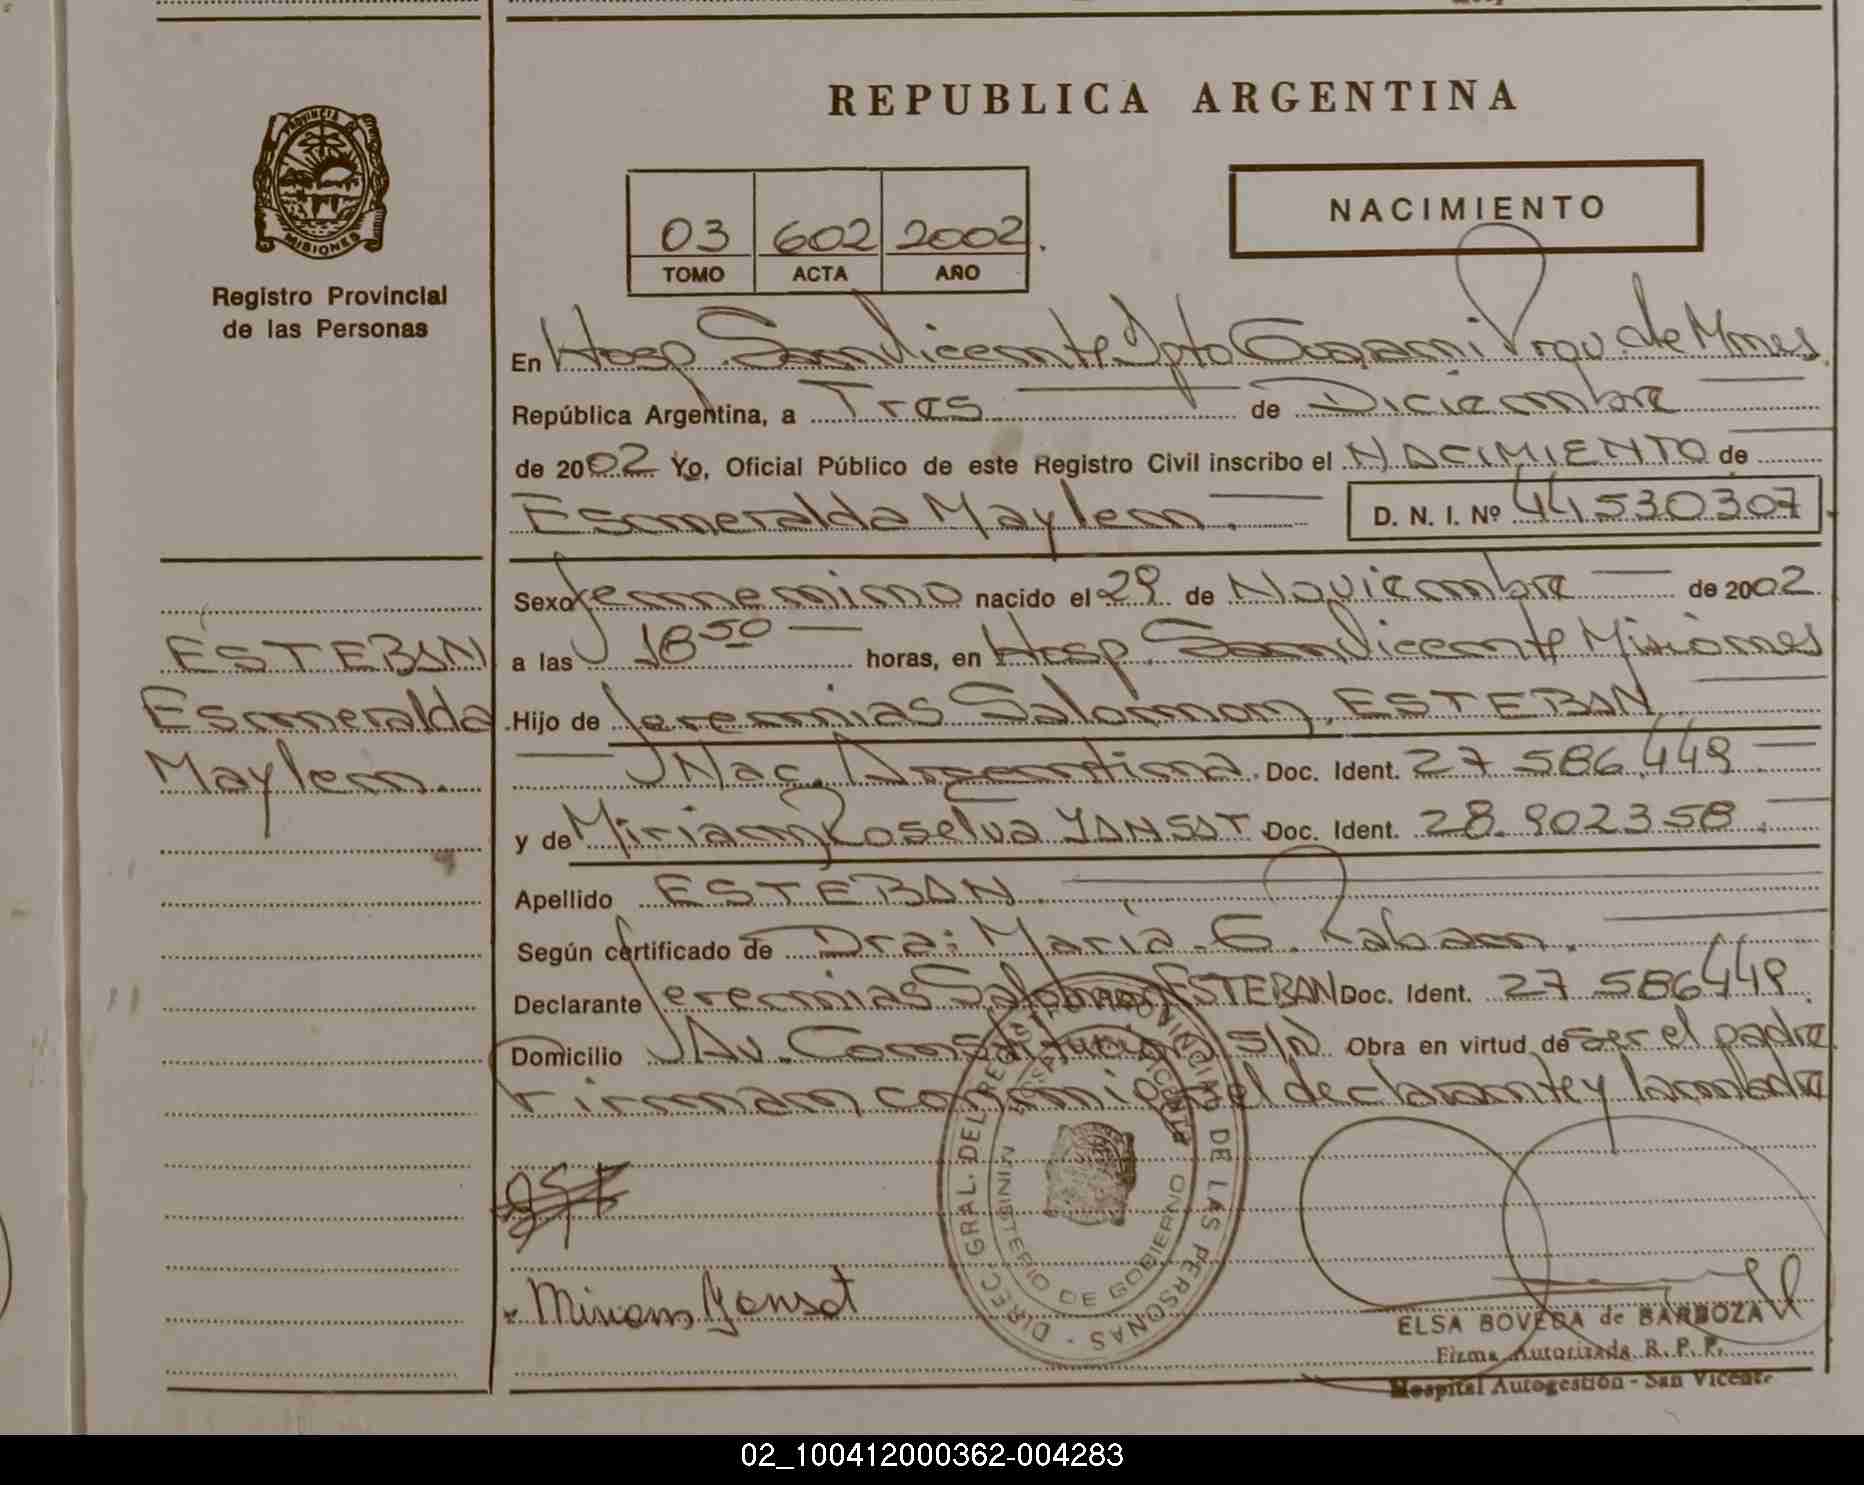 REPUBLICA ARGENTINA
PROVINCIA DE
MISIONES
Registro Provincial
de las Personas
03 602 2002.
TOMO ACTA AÑO
NACIMIENTO
En Hosp. San Vicente Dpto Guarani Prov. de Mnes
República Argentina, a Tres de Diciembre
de 2002 Yo, Oficial Público de este Registro Civil inscribo el NACIMIENTO de
Esmeralda Maylen. D. N. I. Nº 44530307
Sexo femenino nacido el 29 de Noviembre de 2002.
a las 18 50 horas, en Hosp. San Vicente Misiones
Hijo de Jeremias Salomon, ESTEBAN
Nac. Argentina. Doc. Ident. 27 586.449
y de Miriam Roselva YANSAT Doc. Ident. 28.902358.
Apellido ESTEBAN.
Según certificado de Dra: Maria. G. Raban.
Declarante Jeremias Salomon ESTEBAN Doc. Ident. 27 586449.
Domicilio Av. Constitución S/N Obra en virtud de ser el padre
Firman conmigo el declarante y la madre
ESTEBAN
Esmeralda
Maylen.
DIREC. GRAL. DEL REGISTRO PROVINCIAL DE LAS PERSONAS
MINISTERIO DE GOBIERNO
Miriam Yansat
ELSA BOVEDA de BARBOZA
Firma Autorizada R. P. P.
Hospital Autogestión - San Vicente
02_100412000362-004283